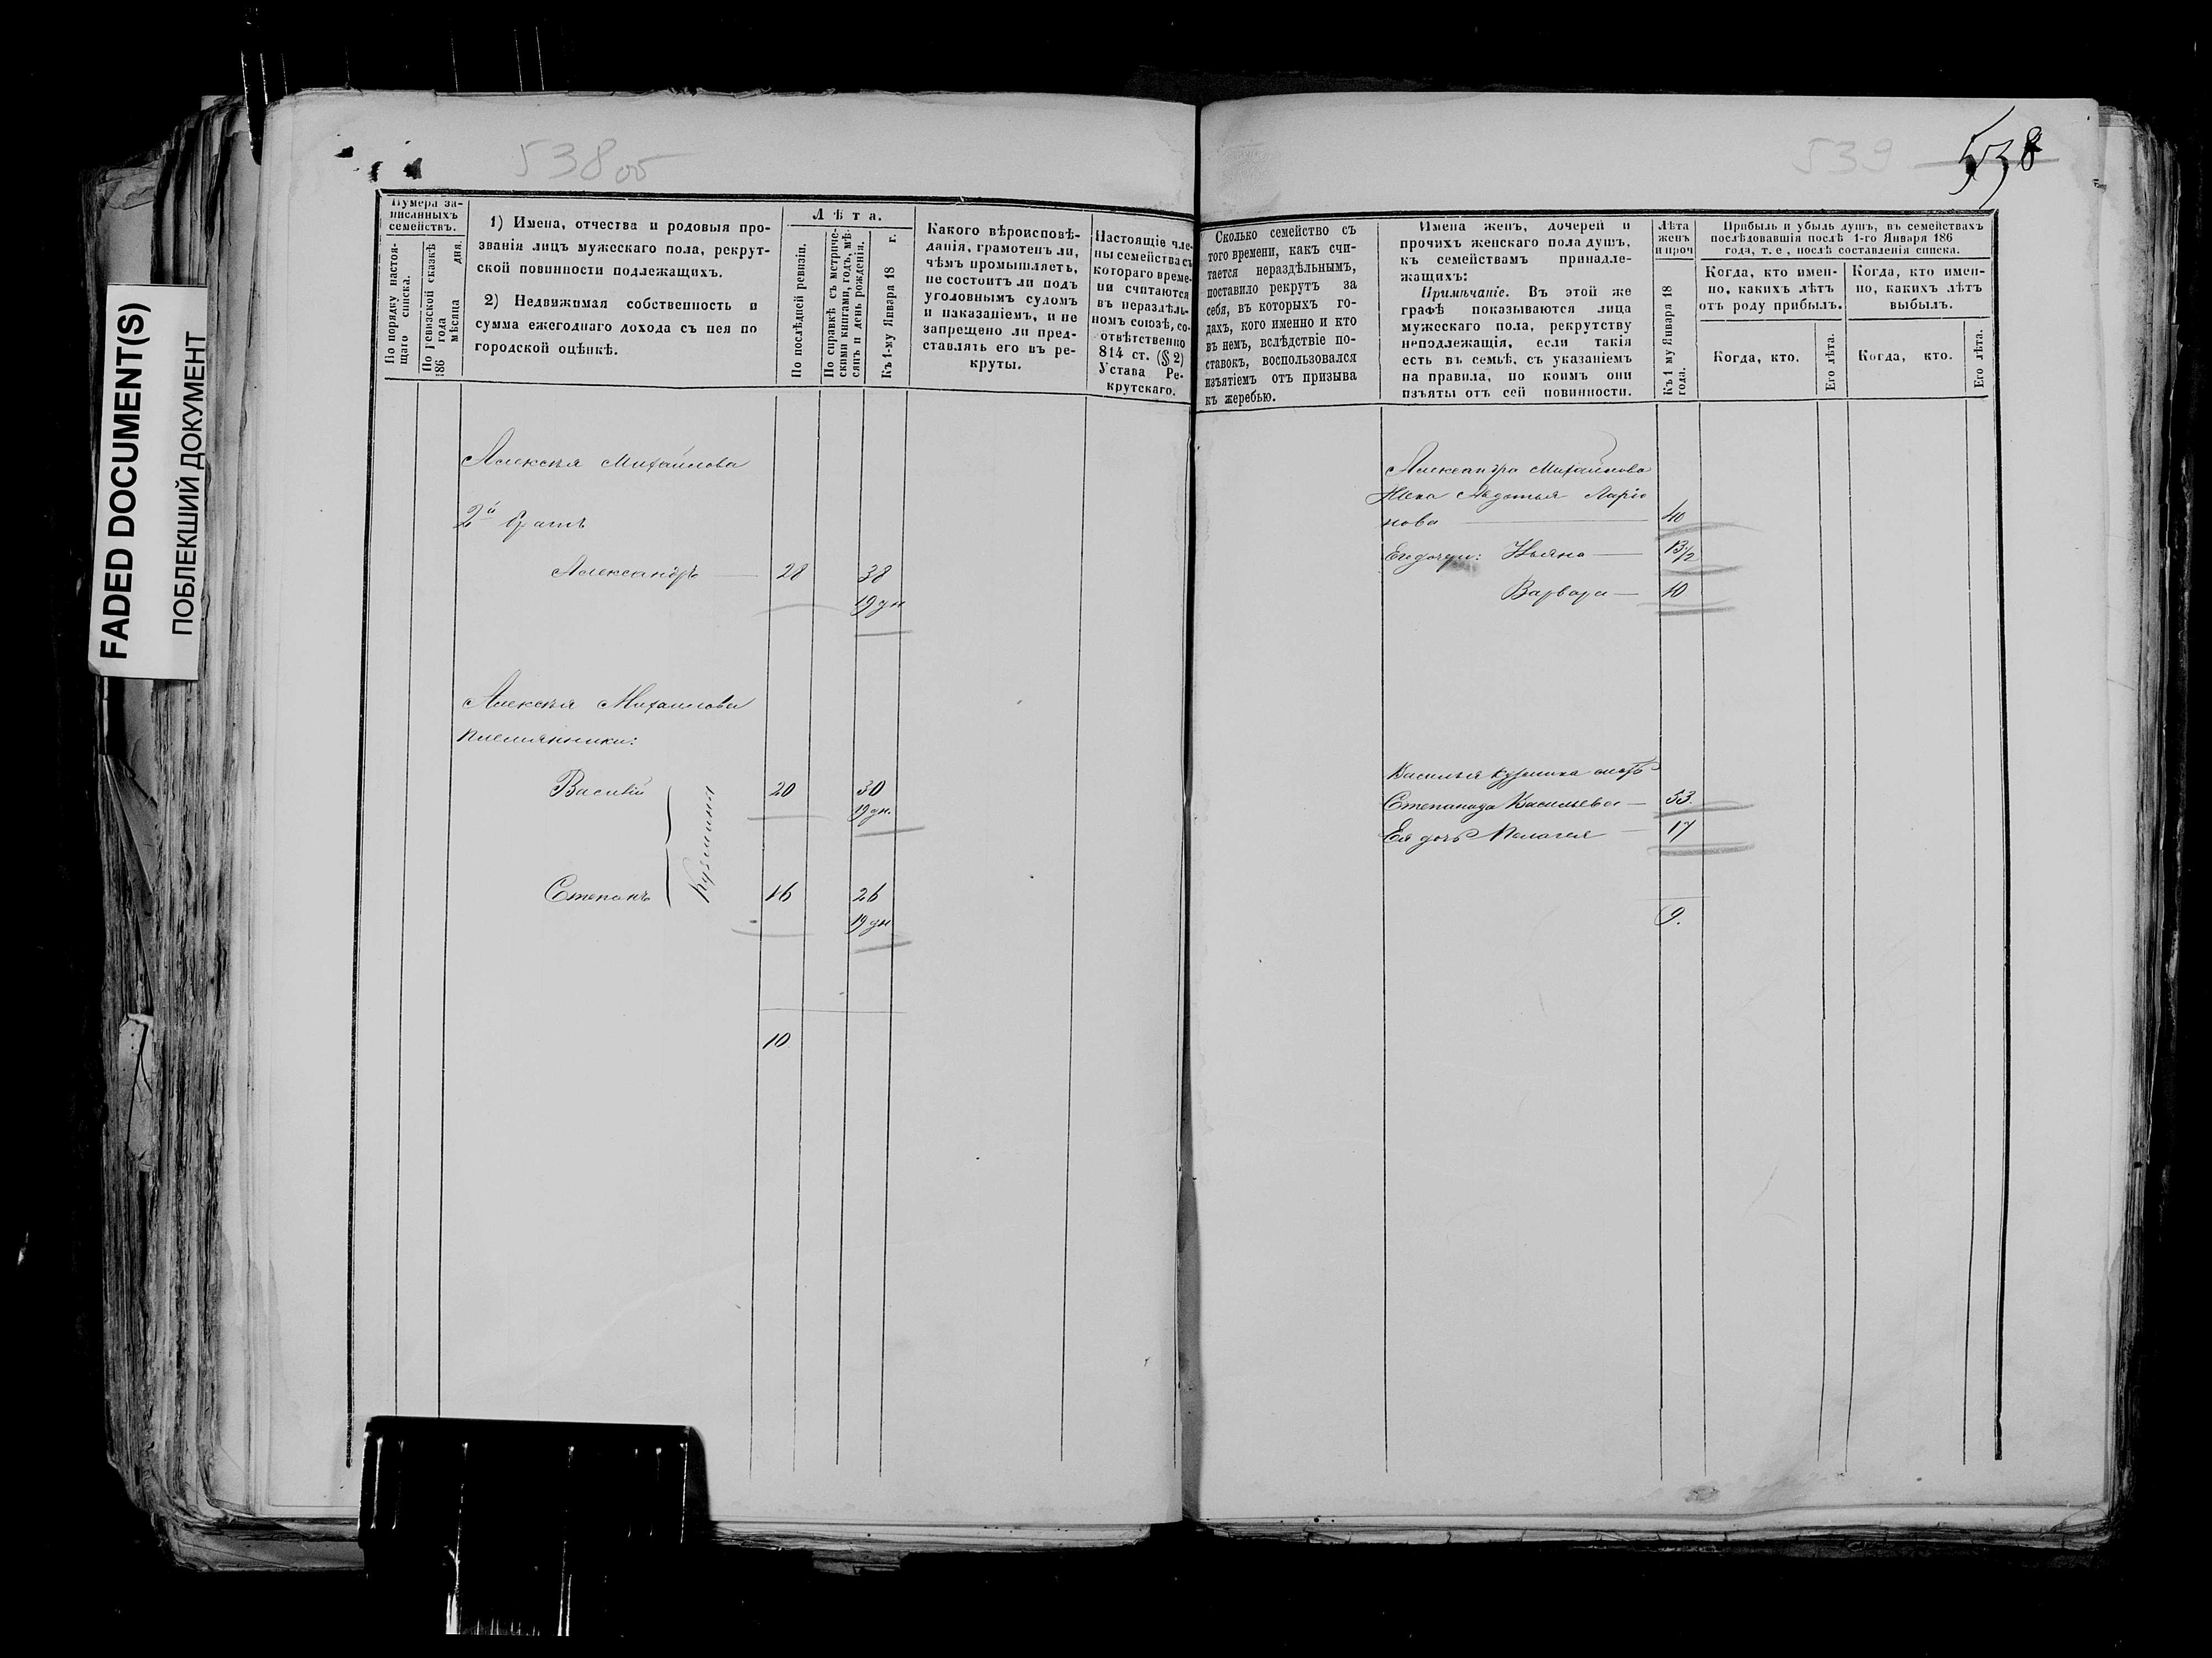 FADED DOCUMENT(S)
ПОБЛЕКШИЙ ДОКУМЕНТ
538об
539
538
Нумера за-
писанныхъ
семействъ.
По порядку настоя-
щаго списка.
По ревизской сказкѣ
186 года
мѣсяца дня.
1) Имена, отчества и родовыя про-
званія лицъ мужескаго пола, рекрут-
ской повинности подлежащихъ.
2) Недвижимая собственность и
сумма ежегоднаго дохода съ нея по
городской оцѣнкѣ.
Лѣта.
По послѣдней ревизіи.
По справкѣ съ метриче-
скими книгами, годъ, мѣ-
сяцъ и день рожденія.
Къ 1-му Января 18 г.
Какого вѣроисповѣ-
данія, грамотенъ ли,
чѣмъ промышляетъ,
не состоитъ ли подъ
уголовнымъ судомъ
и наказаніемъ, и не
запрещено ли пред-
ставлять его въ ре-
круты.
Настоящіе чле-
ны семейства съ
котораго време-
ни считаются
въ нераздѣль-
номъ союзѣ, со-
отвѣтственно
814 ст. (§ 2)
Устава Ре-
крутскаго.
Сколько семейство съ
того времени, какъ счи-
тается нераздѣльнымъ,
поставило рекрутъ за
себя, въ которыхъ го-
дахъ, кого именно и кто
въ немъ, вслѣдствіе по-
ставокъ, воспользовался
изъятіемъ отъ призыва
къ жеребью.
Имена женъ, дочерей и
прочихъ женскаго пола душъ,
къ семействамъ принадле-
жащихъ:
Примѣчаніе. Въ этой же
графѣ показываются лица
мужескаго пола, рекрутству
неподлежащія, если такія
есть въ семьѣ, съ указаніемъ
на правила, по коимъ они
изъяты отъ сей повинности.
Лѣта
женъ
и проч
Къ 1 му Января 18
года.
Прибыль и убыль душъ, въ семействахъ
послѣдовавшія послѣ 1-го Января 186
года, т. е., послѣ составленія списка.
Когда, кто имен-
но, какихъ лѣтъ
отъ роду прибылъ.
Когда, кто имен-
но, какихъ лѣтъ
выбылъ.
Когда, кто.
Его лѣта.
Когда, кто.
Его лѣта.
Алексѣя Михайлова
2й братъ
Александръ — 28 38
19 дн
Алексѣя Михайлова
племянники:
Василій 20 30
19 дн.
Кузмины
Степанъ 16 26
19 дн
10
Александра Михайлова
Жена Авдотья Ларіо
нова — 40
Его дочери: Ульяна — 13½
Варвара — 10
Василья Кузмина мать
Степанида Васильева — 53.
Ея дочь Пелагея — 17
9.